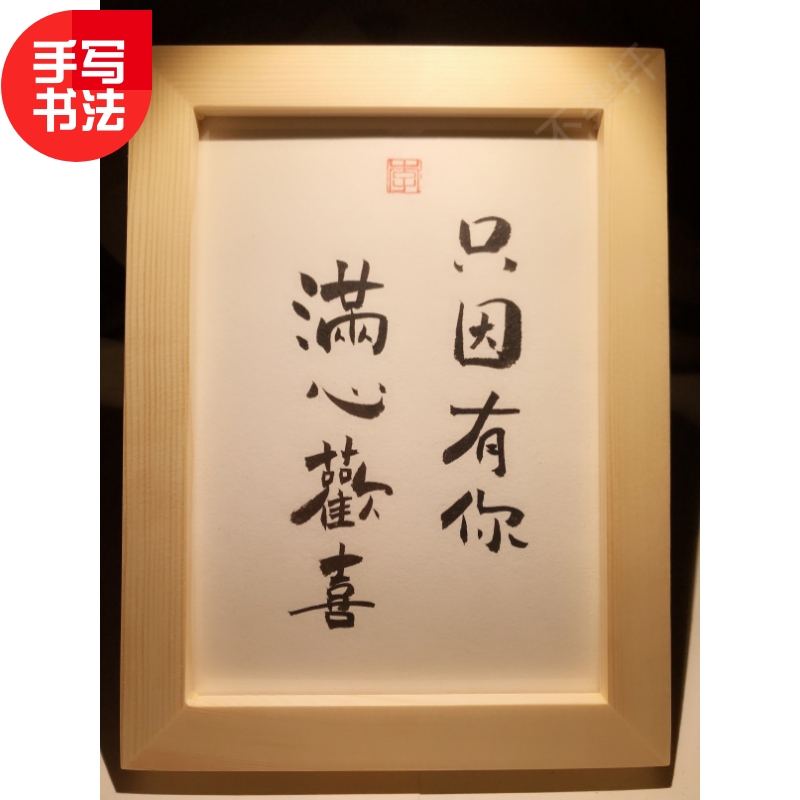 手写
书法
只因有你
滿心歡喜